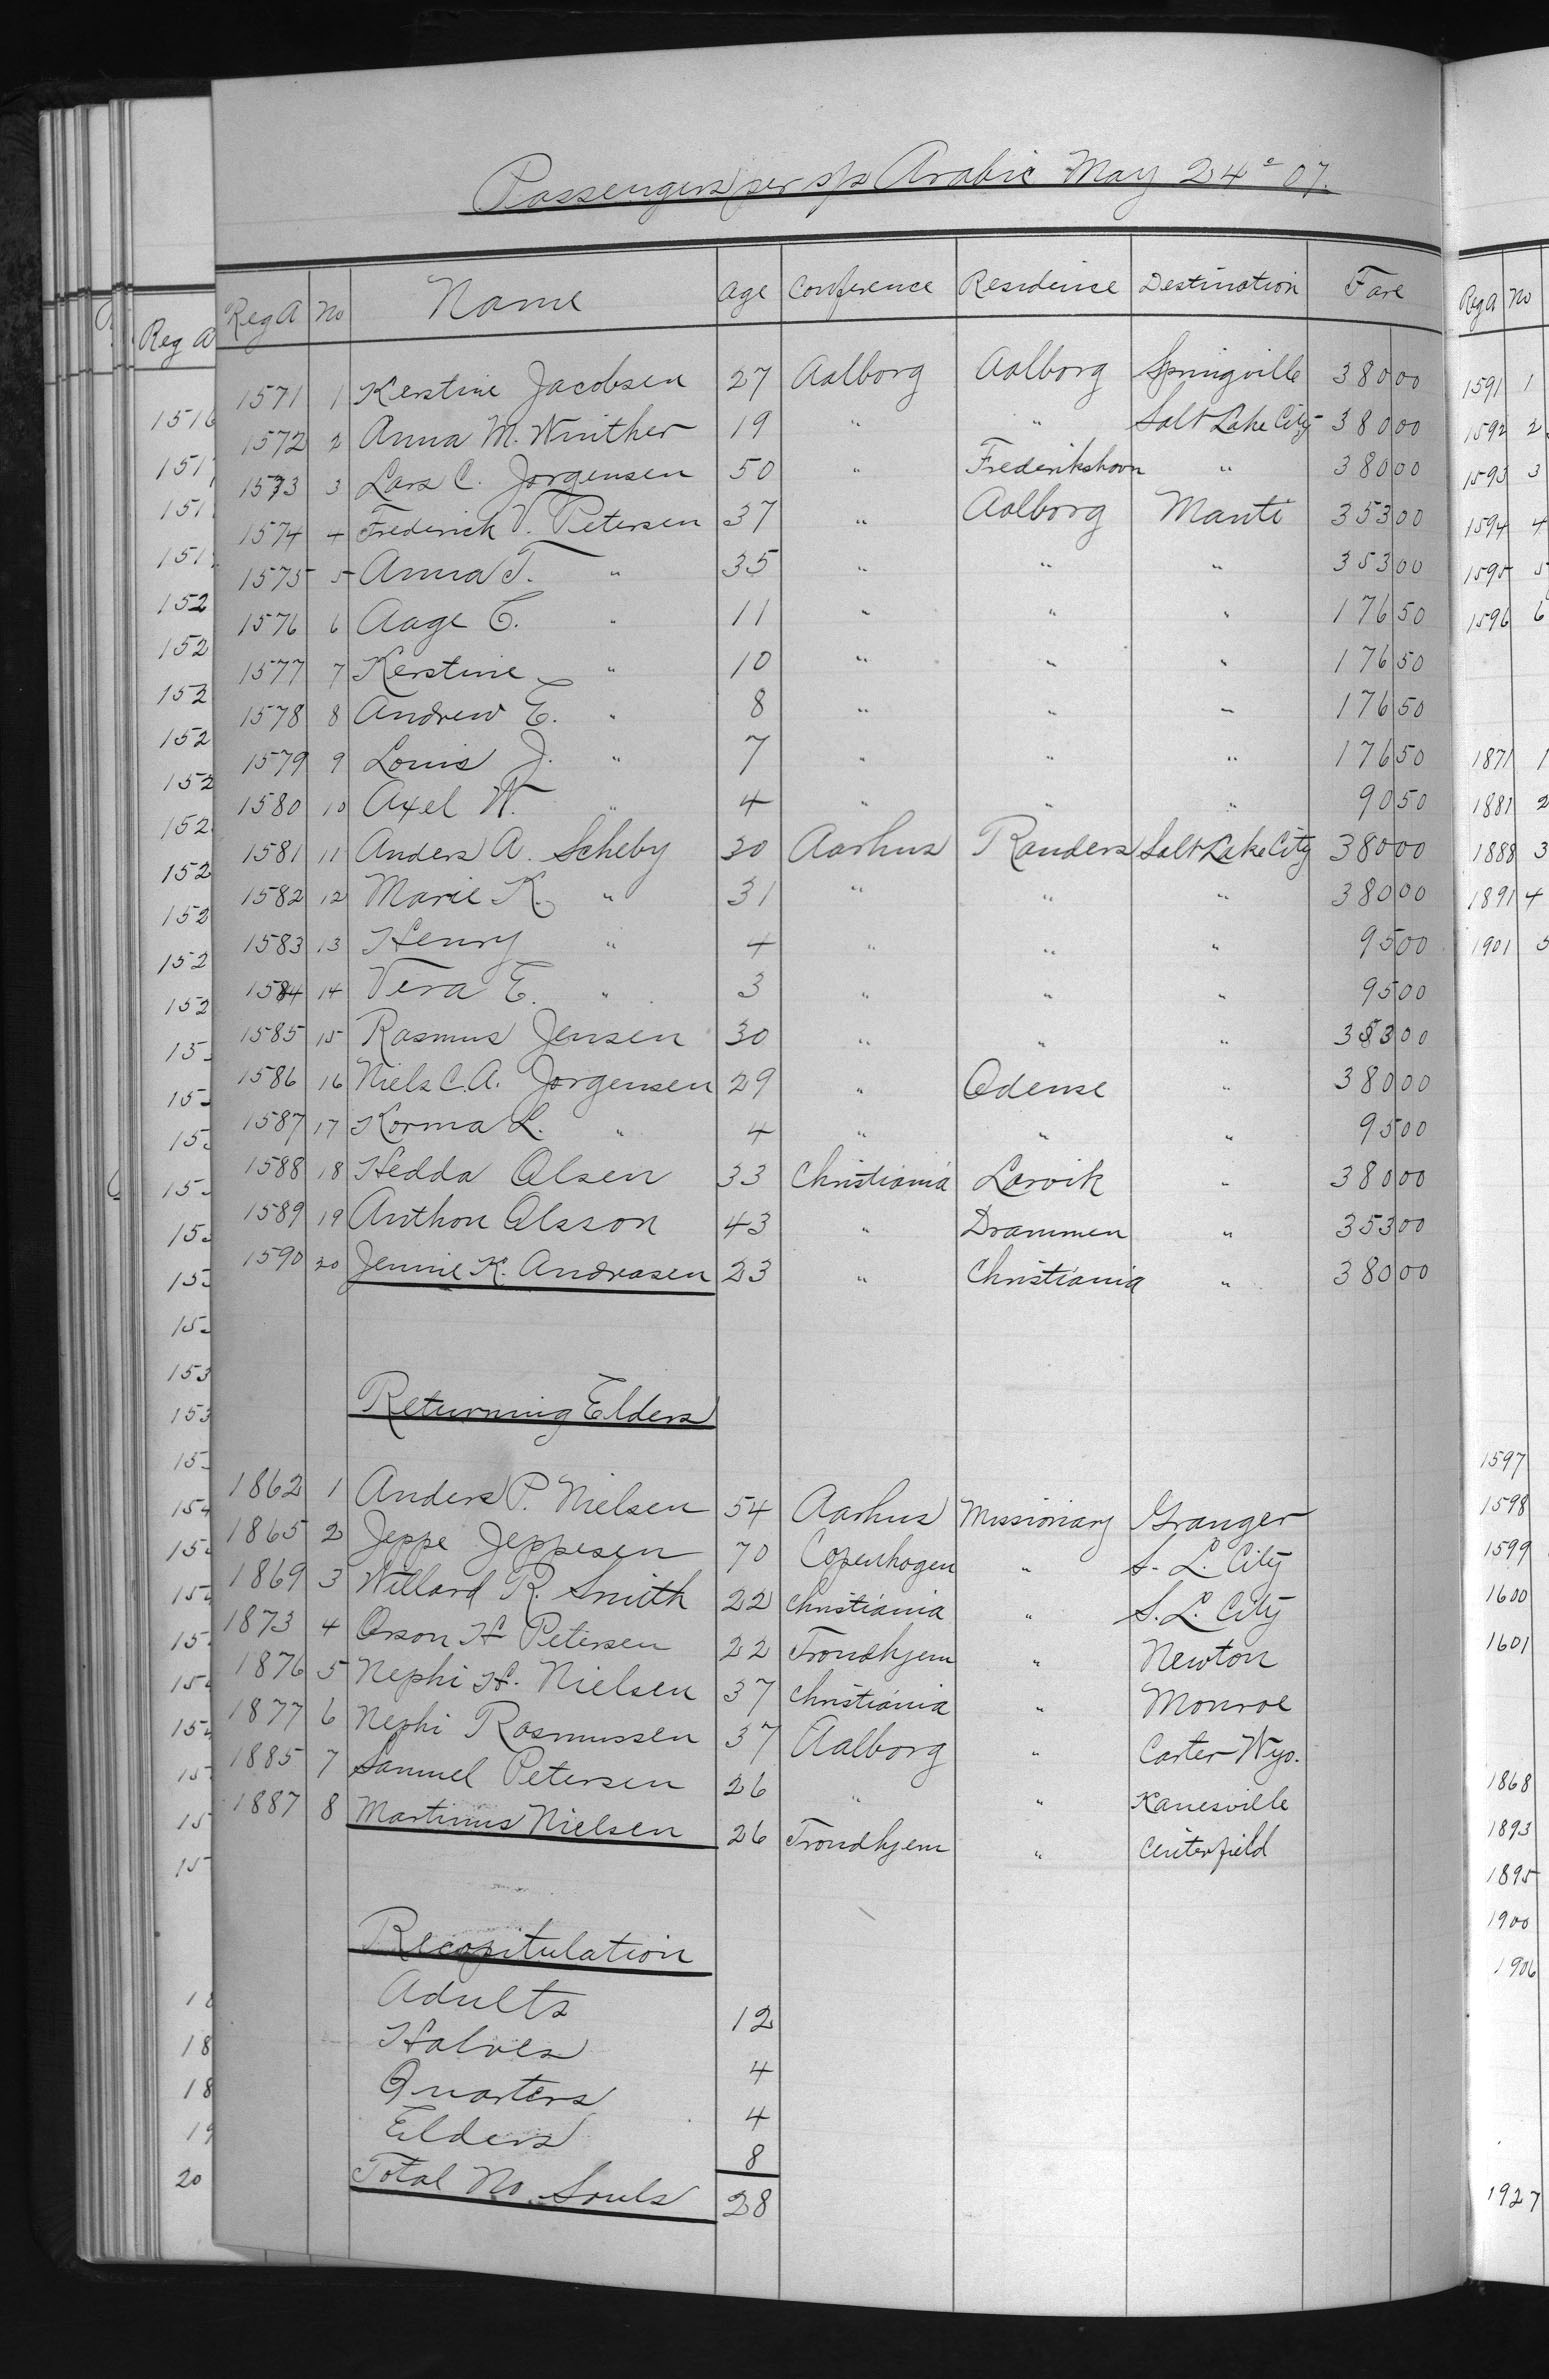 Passengers per s/s Arabic May 24" 07.
Reg A No Name Age Conference Residence Destination Fare
1571 1 Kerstine Jacobsen 27 Aalborg Aalborg Springville 380 00
1572 2 Anna M. Winther 19 " " Salt Lake City 380 00
1573 3 Lars C. Jorgensen 50 " Frederikshavn " 380 00
1574 4 Frederick V. Petersen 37 " Aalborg Manti 353 00
1575 5 Anna T. " 35 " " " 353 00
1576 6 Aage C. " 11 " " " 176 50
1577 7 Kerstine " 10 " " " 176 50
1578 8 Andrew E. " 8 " " " 176 50
1579 9 Louis J. " 7 " " " 176 50
1580 10 Axel W. " 4 " " " 90 50
1581 11 Anders A. Scheby 30 Aarhus Randers Salt Lake City 380 00
1582 12 Marie K. " 31 " " " 380 00
1583 13 Henry " 4 " " " 95 00
1584 14 Vera E. " 3 " " " 95 00
1585 15 Rasmus Jensen 30 " " " 353 00
1586 16 Niels C. A. Jorgensen 29 " Odense " 380 00
1587 17 Korma L. " 4 " " " 95 00
1588 18 Hedda Olsen 33 Christiania Larvik " 380 00
1589 19 Anthon Olsson 43 " Drammen " 353 00
1590 20 Jennie K. Andrasen 23 " Christiania " 380 00
Returning Elders
1862 1 Anders P. Nielsen 54 Aarhus Missionary Granger
1865 2 Jeppe Jeppesen 70 Copenhagen " S. L. City
1869 3 Willard R. Smith 22 Christiania " S. L. City
1873 4 Orson H Petersen 22 Trondhjem " Newton
1876 5 Nephi H. Nielsen 37 Christiania " Monroe
1877 6 Nephi Rasmussen 37 Aalborg " Carter Wyo.
1885 7 Samuel Petersen 26 " " Kanesville
1887 8 Martinus Nielsen 26 Trondhjem " Centerfield
Recapitulation
Adults 12
Halves 4
Quarters 4
Elders 8
Total No. Souls 28
Reg A No
1591 1
1592 2
1593 3
1594 4
1595 5
1596 6
1871 1
1881 2
1888 3
1891 4
1901 5
1597
1598
1599
1600
1601
1868
1893
1895
1900
1906
1927